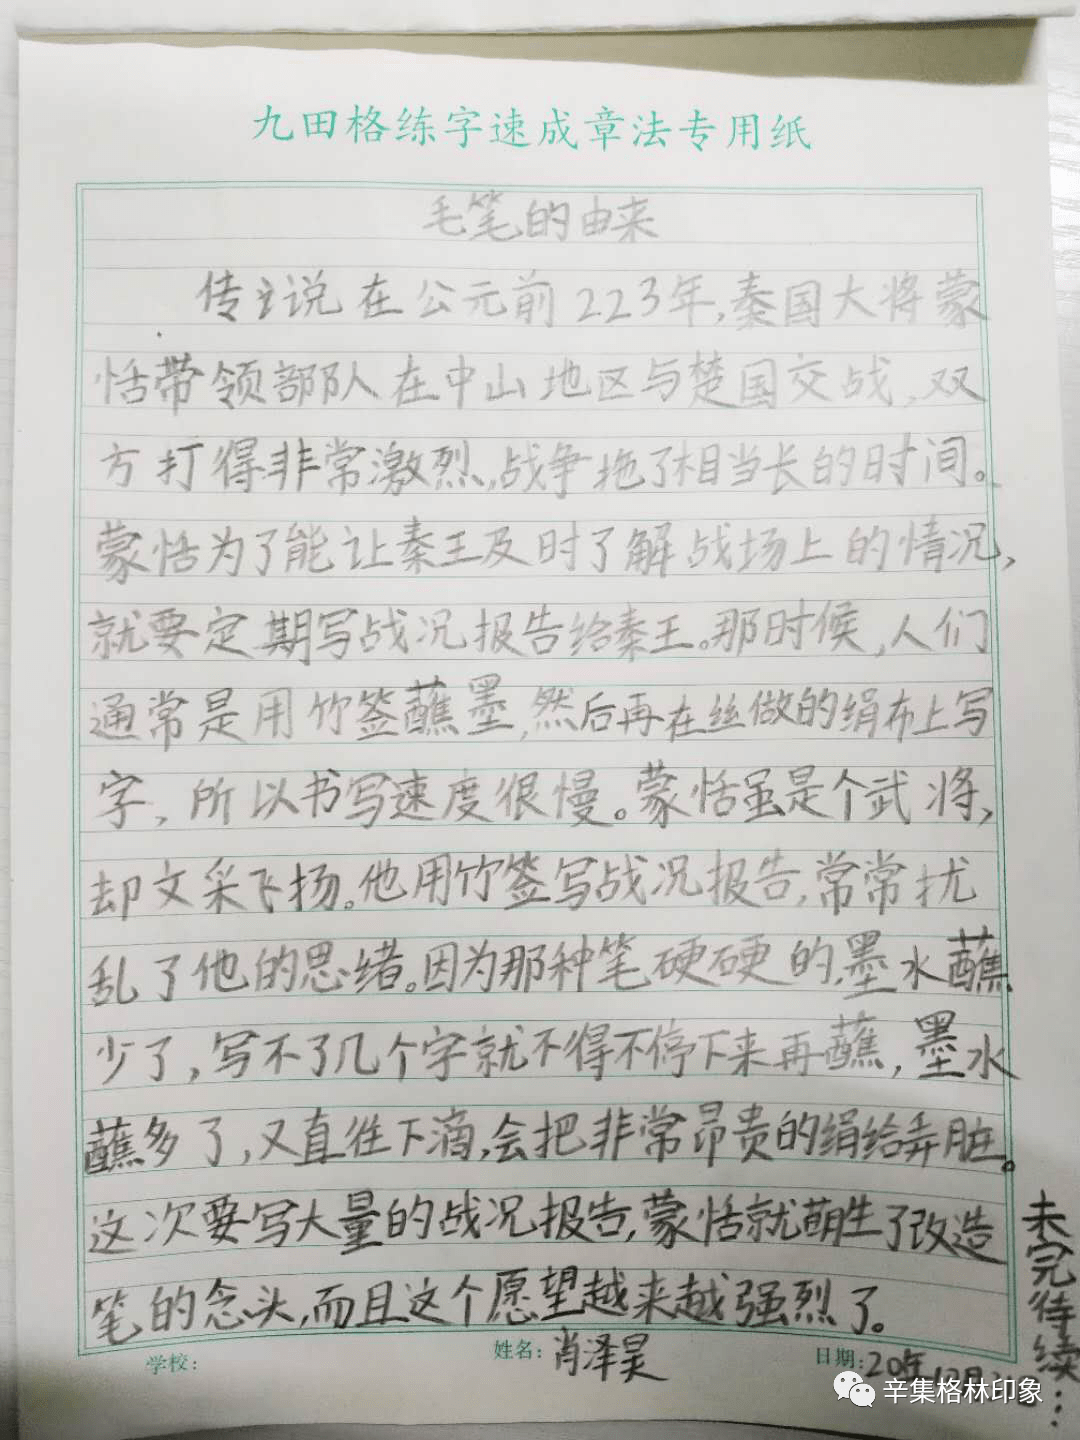 九田格练字速成章法专用纸
毛笔的由来
传说在公元前223年,秦国大将蒙
恬带领部队在中山地区与楚国交战,双
方打得非常激烈,战争拖了相当长的时间。
蒙恬为了能让秦王及时了解战场上的情况,
就要定期写战况报告给秦王。那时候,人们
通常是用竹签蘸墨,然后再在丝做的绢布上写
字,所以书写速度很慢。蒙恬虽是个武将,
却文采飞扬。他用竹签写战况报告,常常扰
乱了他的思绪。因为那种笔硬硬的,墨水蘸
少了,写不了几个字就不得不停下来再蘸,墨水
蘸多了,又直往下滴,会把非常昂贵的绢给弄脏。
这次要写大量的战况报告,蒙恬就萌生了改造
笔的念头,而且这个愿望越来越强烈了。
未完待续…
学校: 姓名:肖泽昊 日期:20年12月
辛集格林印象